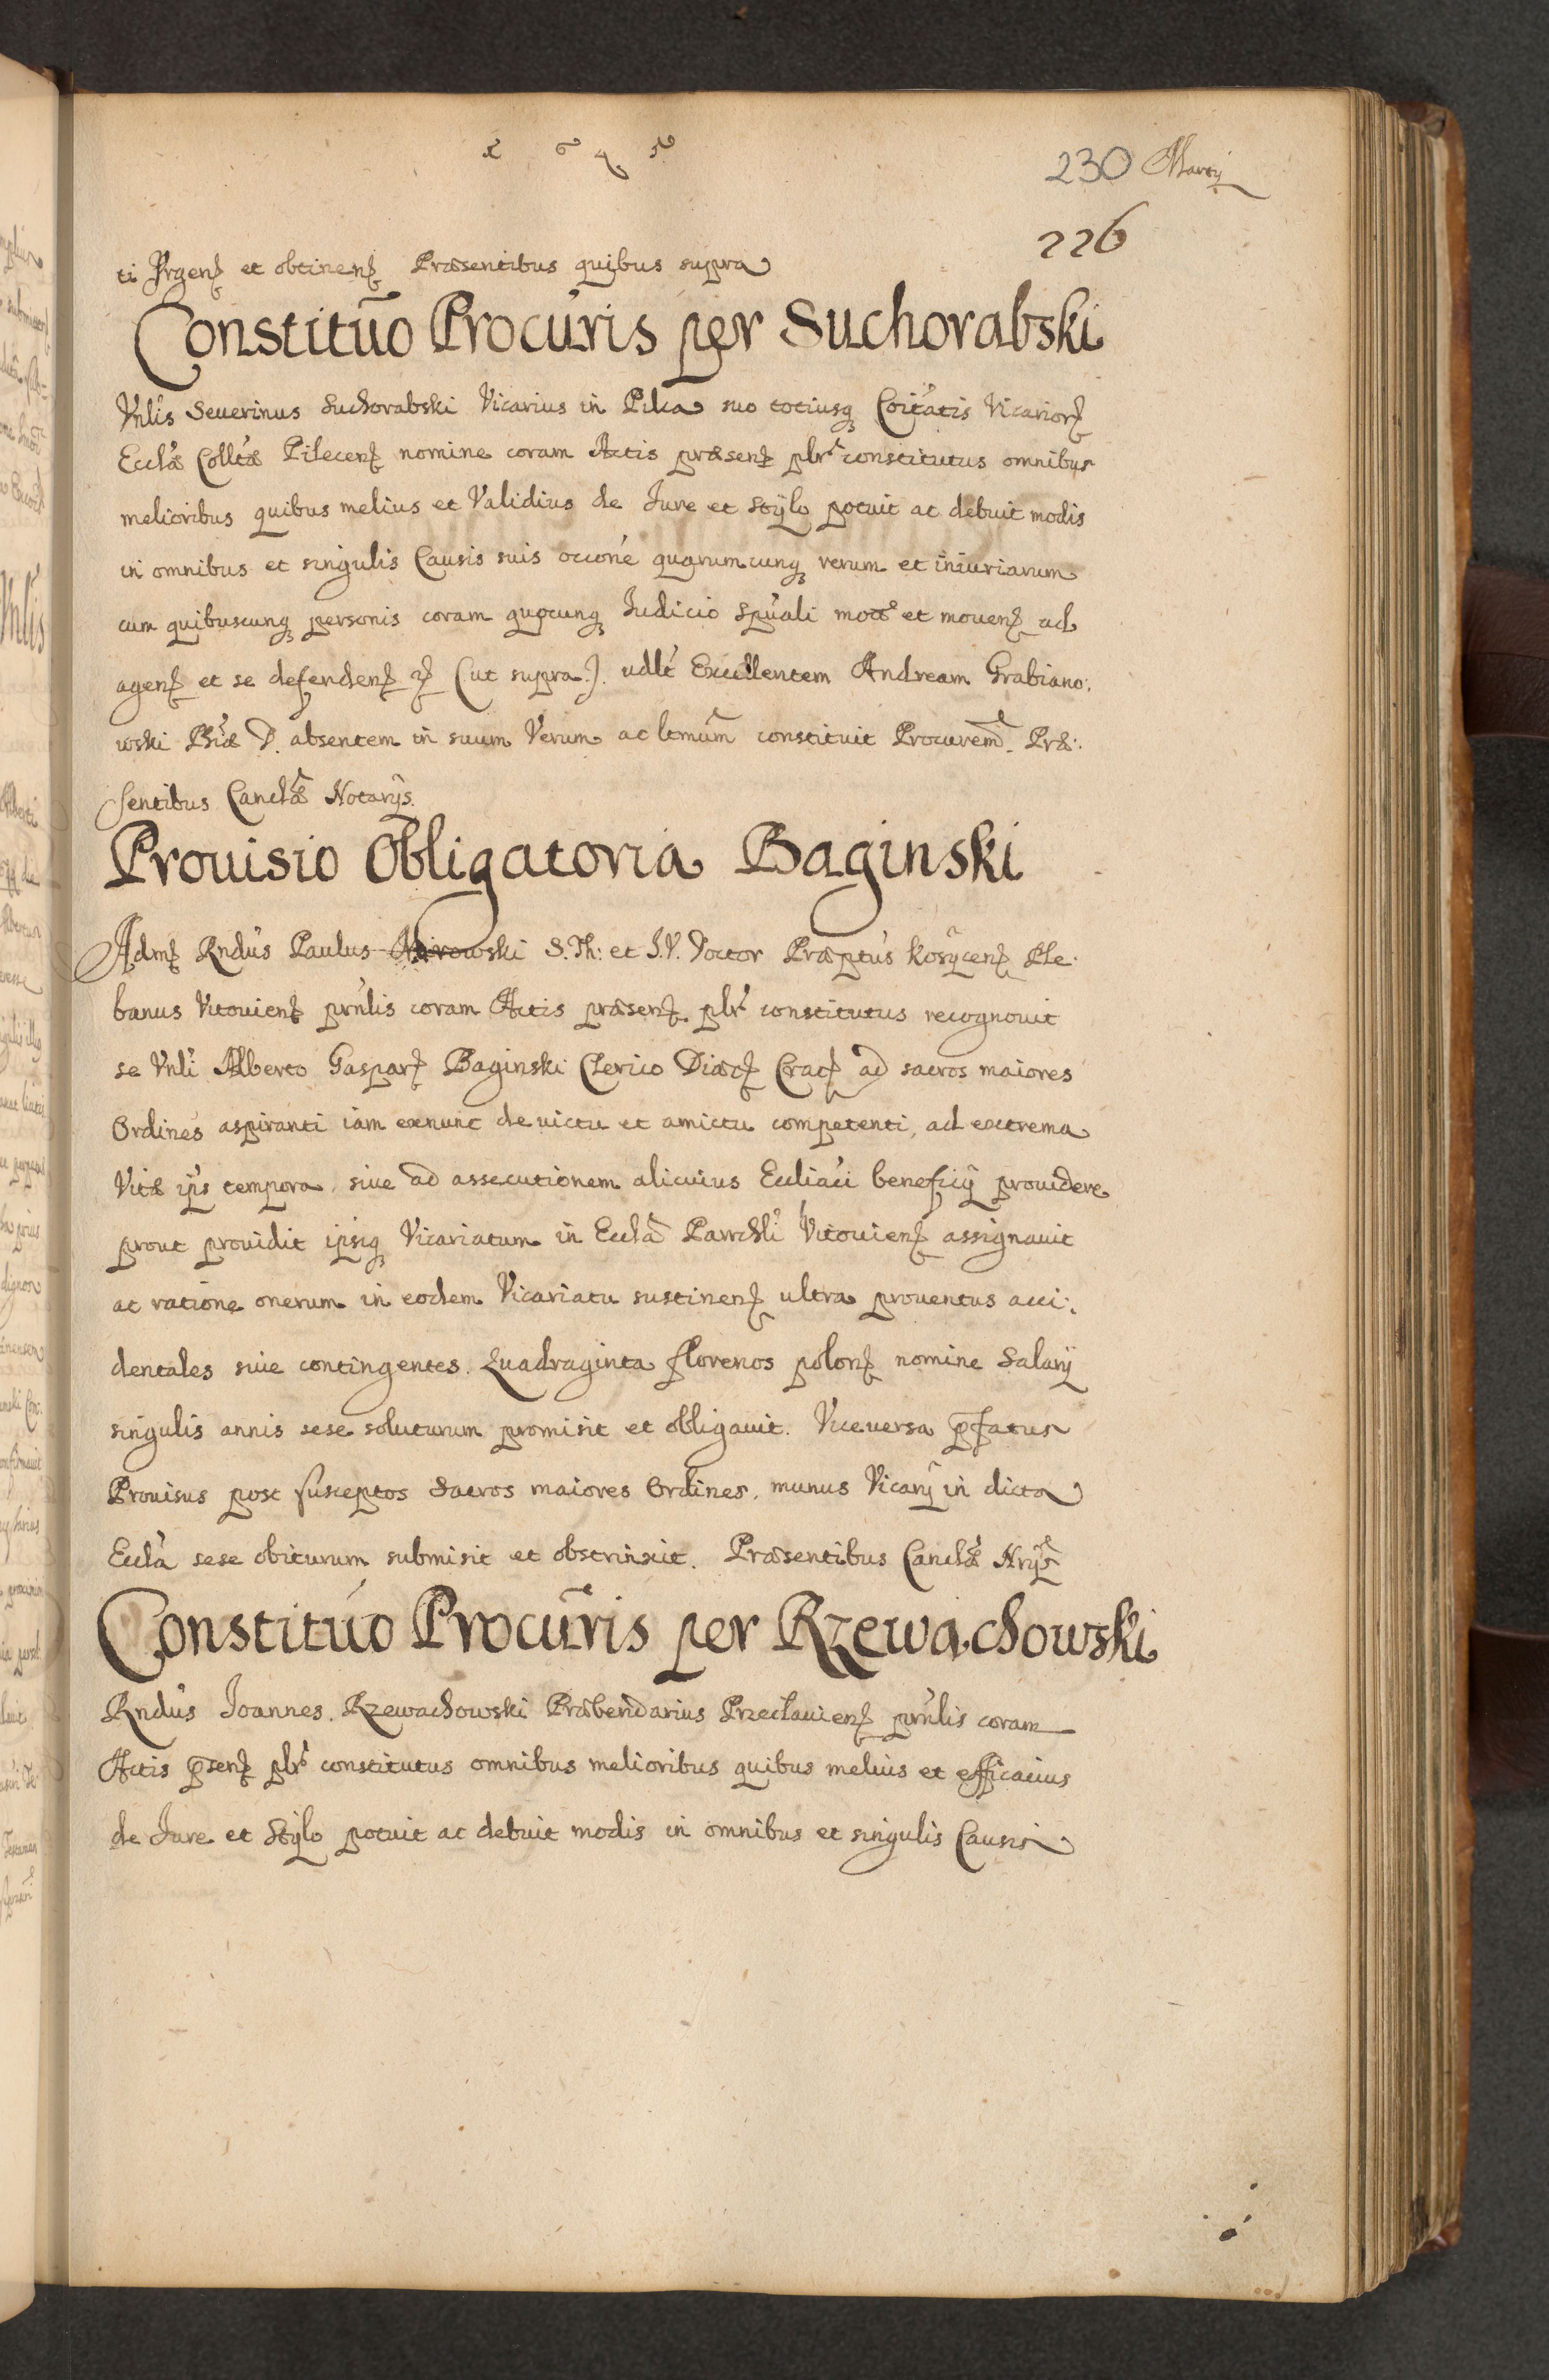 1 6 9 5
230 Martij
226
ti Prgenʒ et obtinenʒ Præsentibus quibus supra
Constitũo Procúris per Suchorabski
Vnlis Seuerinus Suchorabski Vicarius in Pilca suo totiusqꝫ Coitatis Vicariorʒ
Ecclæ Colltæ Pilecenʒ nomine coram Actis præsenʒ plr constitutus omnibus
melioribus quibus melius et Validius de Iure et stylo potuit ac debuit modis
in omnibus et singulis Causis suis occone quarumcunqꝫ rerum et iniuriarum
cum quibuscunqꝫ personis coram quocunqꝫ Iudicio Spuali mots et mouenʒ ad
agenʒ et se defendenʒ (ut supra.) vdlt Excellentem Andream Grabiano:
wski Phiæ D. absentem in suum Verum ac ltmũm constituit Procurem. Præ:
sentibus Canclæ Notarijs.
Prouisio Obligatoria Baginski
Admʒ Rndus Paulus Mirowski S. Th: et I.V. Doctor Præptus Kosycenʒ Ple:
banus Vitouienʒ prnlis coram Actis præsenʒ plr constitutus recognouit
se Vnli Alberto Gasparʒ Baginski Clerico Diæcʒ Cracʒ ad sacros maiores
Ordines aspiranti iam exnunc de uictu et amictu competenti, ad extrema
Vitæ ijs tempora, siue ad assecutionem alicuius Ecliaci beneficij prouidere
prout prouidit ipsiqꝫ Vicariatum in Eccla Parrchli Vitouienʒ assignauit
ac ratione onerum in eodem Vicariatu sustinenʒ ultra prouentus acci:
dentales siue contingentes. Quadraginta florenos polonʒ nomine Salarij
singulis annis sese soluturum promisit et obligauit. Viceuersa p̄fatus
Prouisus post susceptos Sacros maiores Ordines, munus Vicarij in dicta
Eccla sese obiturum submisit et obstrinxit. Præsentibus Canclæ Nrijs
Constitúo Procũris per Rzewachowski
Rndus Ioannes Rzewachowski Præbendarius Przeclauienʒ prnlis coram
Actis p̄senʒ plr constitutus omnibus melioribus quibus melius et efficacius
de Iure et Stylo potuit ac debuit modis in omnibus et singulis Causis